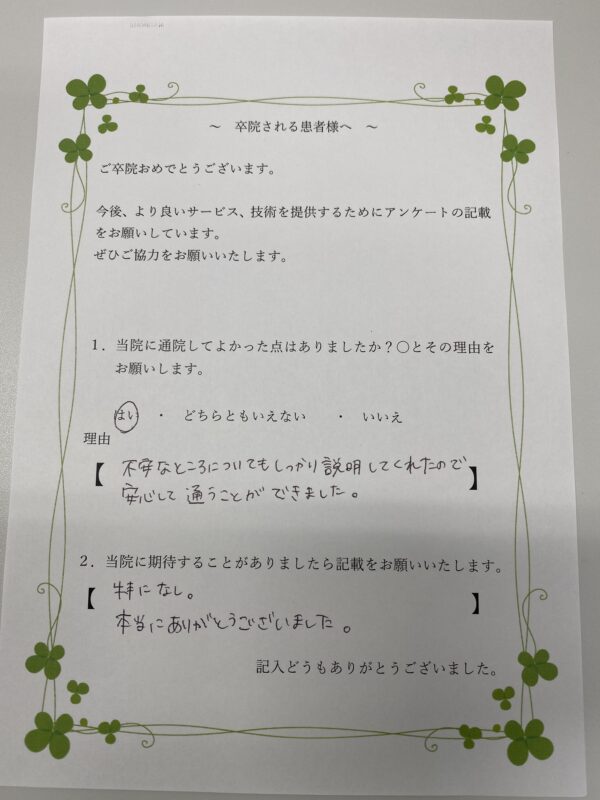 ～ 卒院される患者様へ ～
ご卒院おめでとうございます。
今後、より良いサービス、技術を提供するためにアンケートの記載
をお願いしています。
ぜひご協力をお願いいたします。
1．当院に通院してよかった点はありましたか？〇とその理由を
お願いします。
はい ・ どちらともいえない ・ いいえ
理由
【 不安なところについてもしっかり説明してくれたので
安心して通うことができました。 】
2．当院に期待することがありましたら記載をお願いいたします。
【 特になし。 】
本当にありがとうございました。
記入どうもありがとうございました。